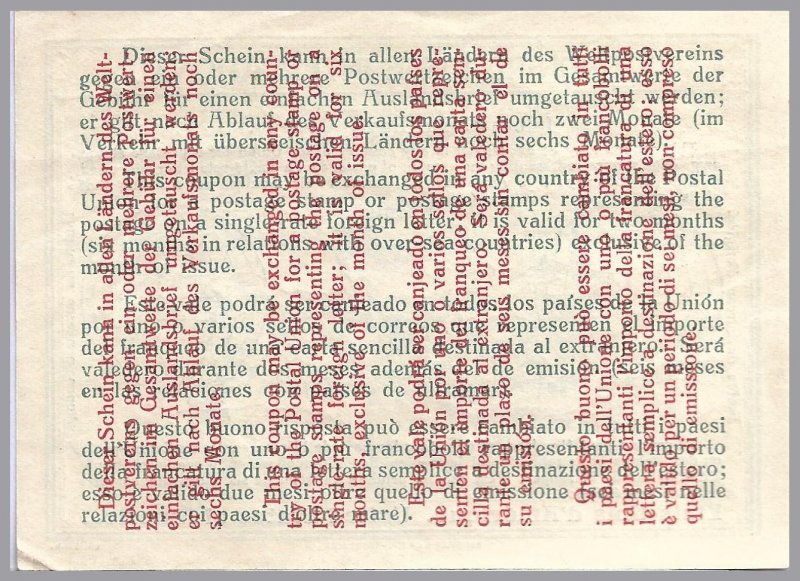 Dieser Schein kann in allen Ländern des Weltpostvereins
gegen ein oder mehrere Postwertzeichen im Gesamtwerte der
Gebühr für einen einfachen Auslandsbrief umgetauscht werden;
er gilt nach Ablauf des Verkaufsmonats noch zwei Monate (im
Verkehr mit überseeischen Ländern noch sechs Monate).
This coupon may be exchanged in any country of the Postal
Union for a postage stamp or postage stamps representing the
postage on a single rate foreign letter. It is valid for two months
(six months in relations with over sea countries) exclusive of the
month of issue.
Este vale podrá ser canjeado en todos los países de la Unión
por uno o varios sellos de correos que representen el importe
del franqueo de una carta sencilla destinada al extranjero. Será
valedero durante dos meses además del de emisión (seis meses
en las relaciones con países de ultramar).
Questo buono risposta può essere cambiato in tutti i paesi
dell'Unione con uno o più francobolli rappresentanti l'importo
della francatura di una lettera semplice a destinazione dell'estero;
esso è valido due mesi oltre quello di emissione (sei mesi nelle
relazioni coi paesi d'oltre mare).
Dieser Schein kann in allen Ländern des Welt-
postvereins gegen ein oder mehrere Postwert-
zeichen im Gesamtwerte der Gebühr für einen
einfachen Auslandsbrief umgetauscht werden;
er gilt nach Ablauf des Verkaufsmonats noch
sechs Monate.
This coupon may be exchanged in any coun-
try of the Postal Union for a postage stamp or
postage stamps representing the postage on a
single rate foreign letter; it is valid for six
months, exclusive of the month of issue.
Este vale podrá ser canjeado en todos los países
de la Unión por uno o varios sellos que repre-
senten el importe del franqueo de una carta sen-
cilla destinada al extranjero. Será valedero du-
rante un plazo de seis meses sin contar el de
su emisión.
Questo buono può essere cambiato in tutti
i paesi dell'Unione con uno o più francobolli
rappresentanti l'importo della francatura di una
lettera semplice a destinazione dell'estero; esso
è valido per un periodo di sei mesi, non compreso
quello di emissione.